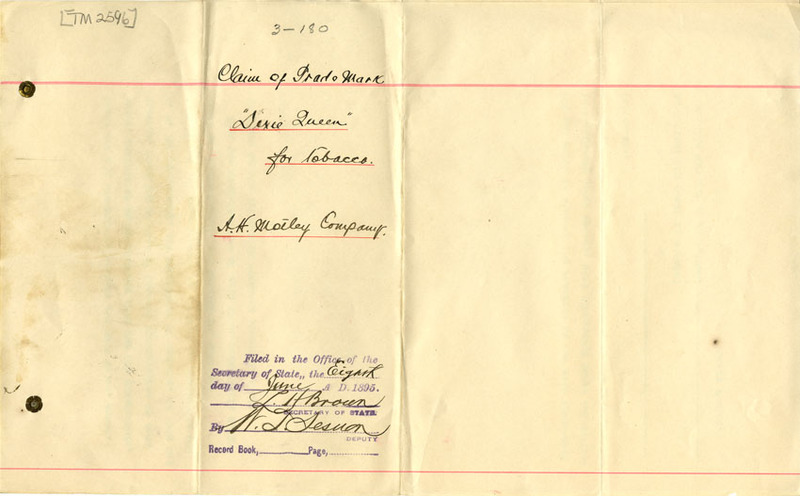 [TM 2596]
3-180
Claim of Trade Mark
"Dixie Queen"
for Tobacco.
A.H. Motley Company.
Filed in the Office of the
Secretary of State, the Eighth
day of June A. D. 1895.
L. H. Brown
SECRETARY OF STATE.
By W. T. Sesnon
DEPUTY
Record Book, Page,